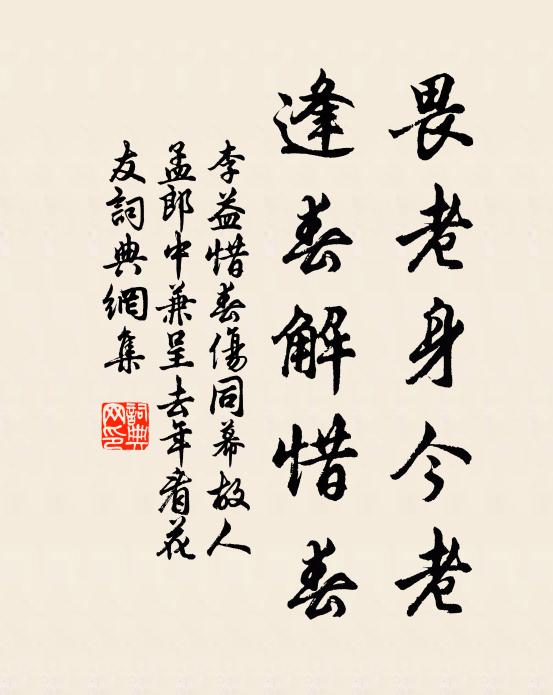 畏老身今老
逢春解惜春
李益惜春傷同幕故人
孟郎中兼呈去年看花
友詞典網集
詞典
网印